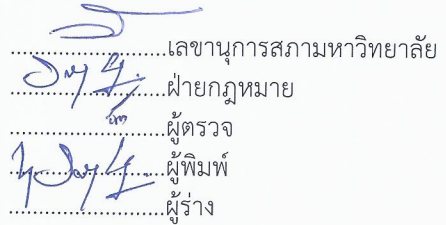 ........................เลขานุการสภามหาวิทยาลัย
........................ฝ่ายกฎหมาย
........................ผู้ตรวจ
........................ผู้พิมพ์
........................ผู้ร่าง